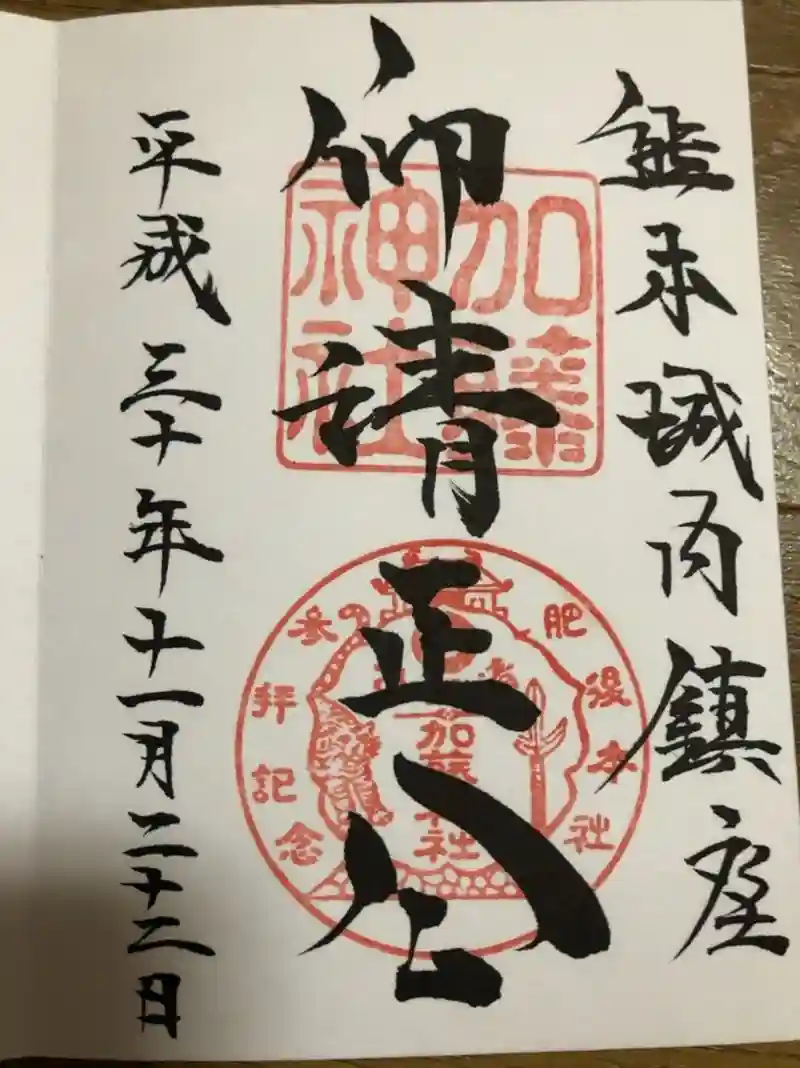 熊本城内鎮座
仰清正公
平成三十年十一月二十二日
加藤神社
肥後本社
参拝記念
加藤神社